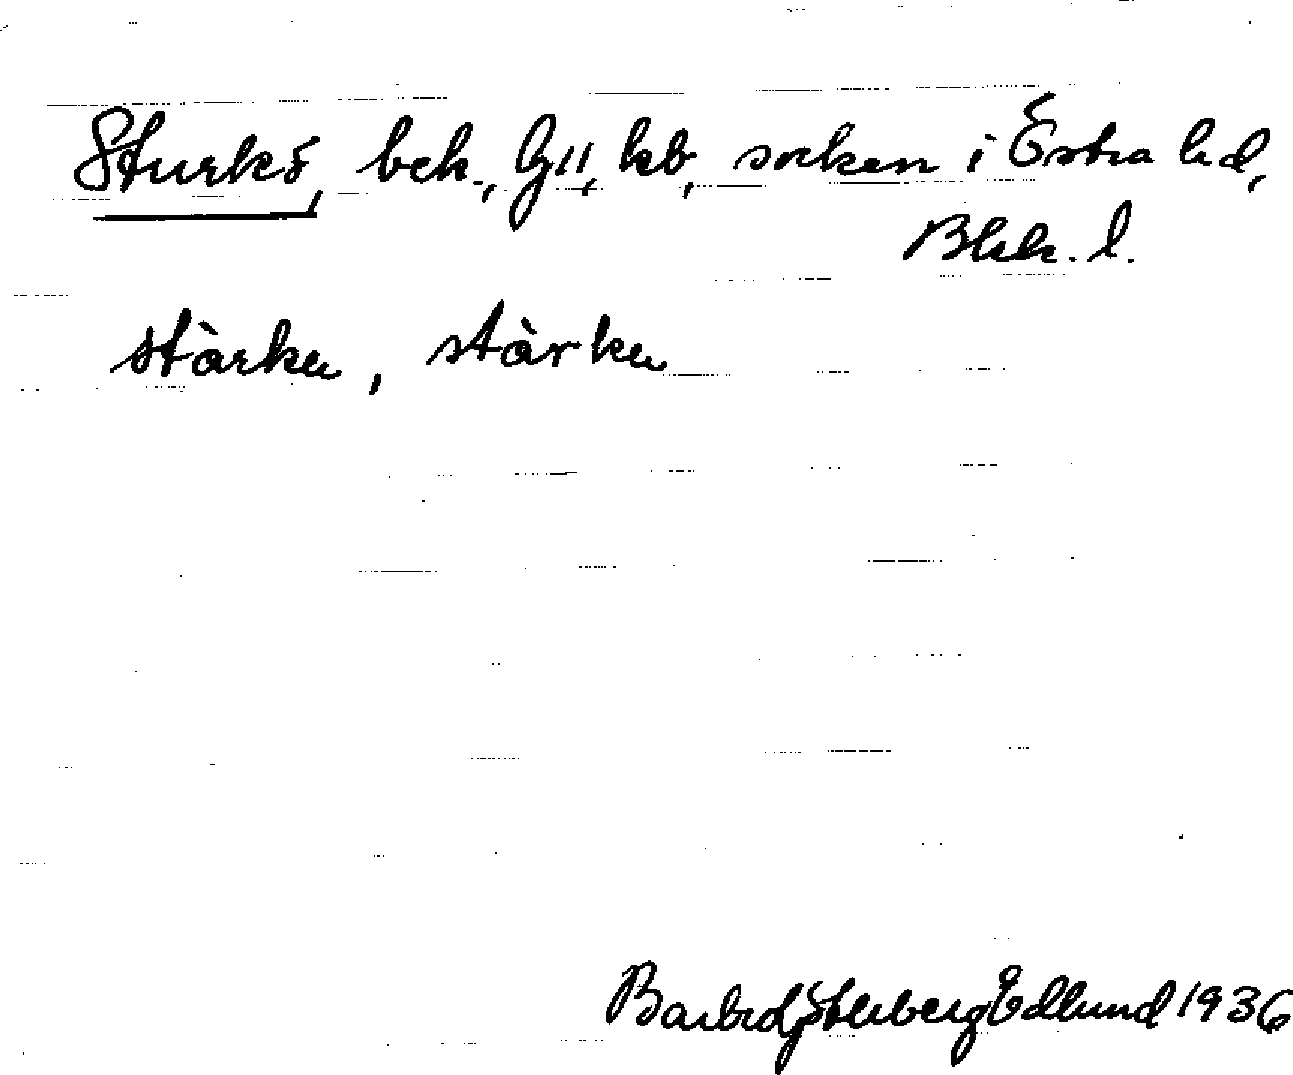 Sturkö, beb., GII, kb, socken i Östra hd,
Blek. l.
stàrkⱥ, stàrkⱥ
Barbro Söderberg Edlund 1936